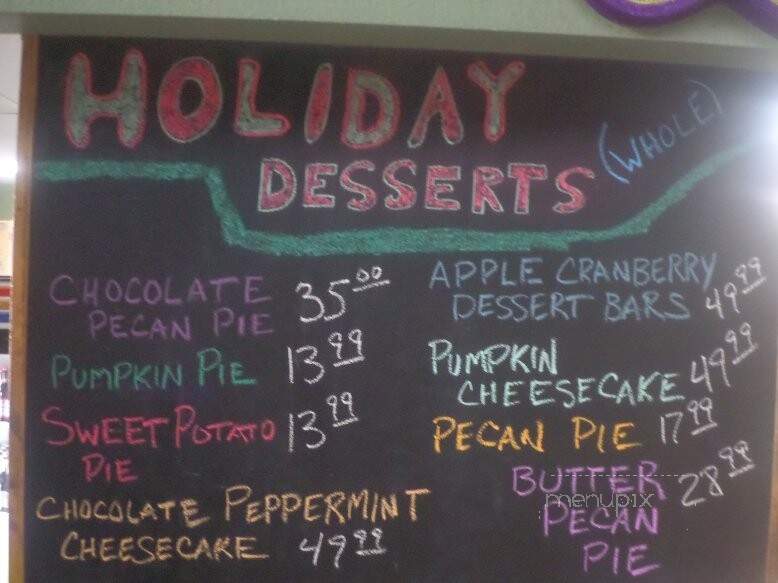 HOLIDAY
DESSERTS (WHOLE)
CHOCOLATE
PECAN PIE 35.00
PUMPKIN PIE 13.99
SWEET POTATO
PIE 13.99
CHOCOLATE PEPPERMINT
CHEESECAKE 49.99
APPLE CRANBERRY
DESSERT BARS 49.99
PUMPKIN
CHEESECAKE 49.99
PECAN PIE 17.99
BUTTER 28.99
PECAN
PIE
menupix